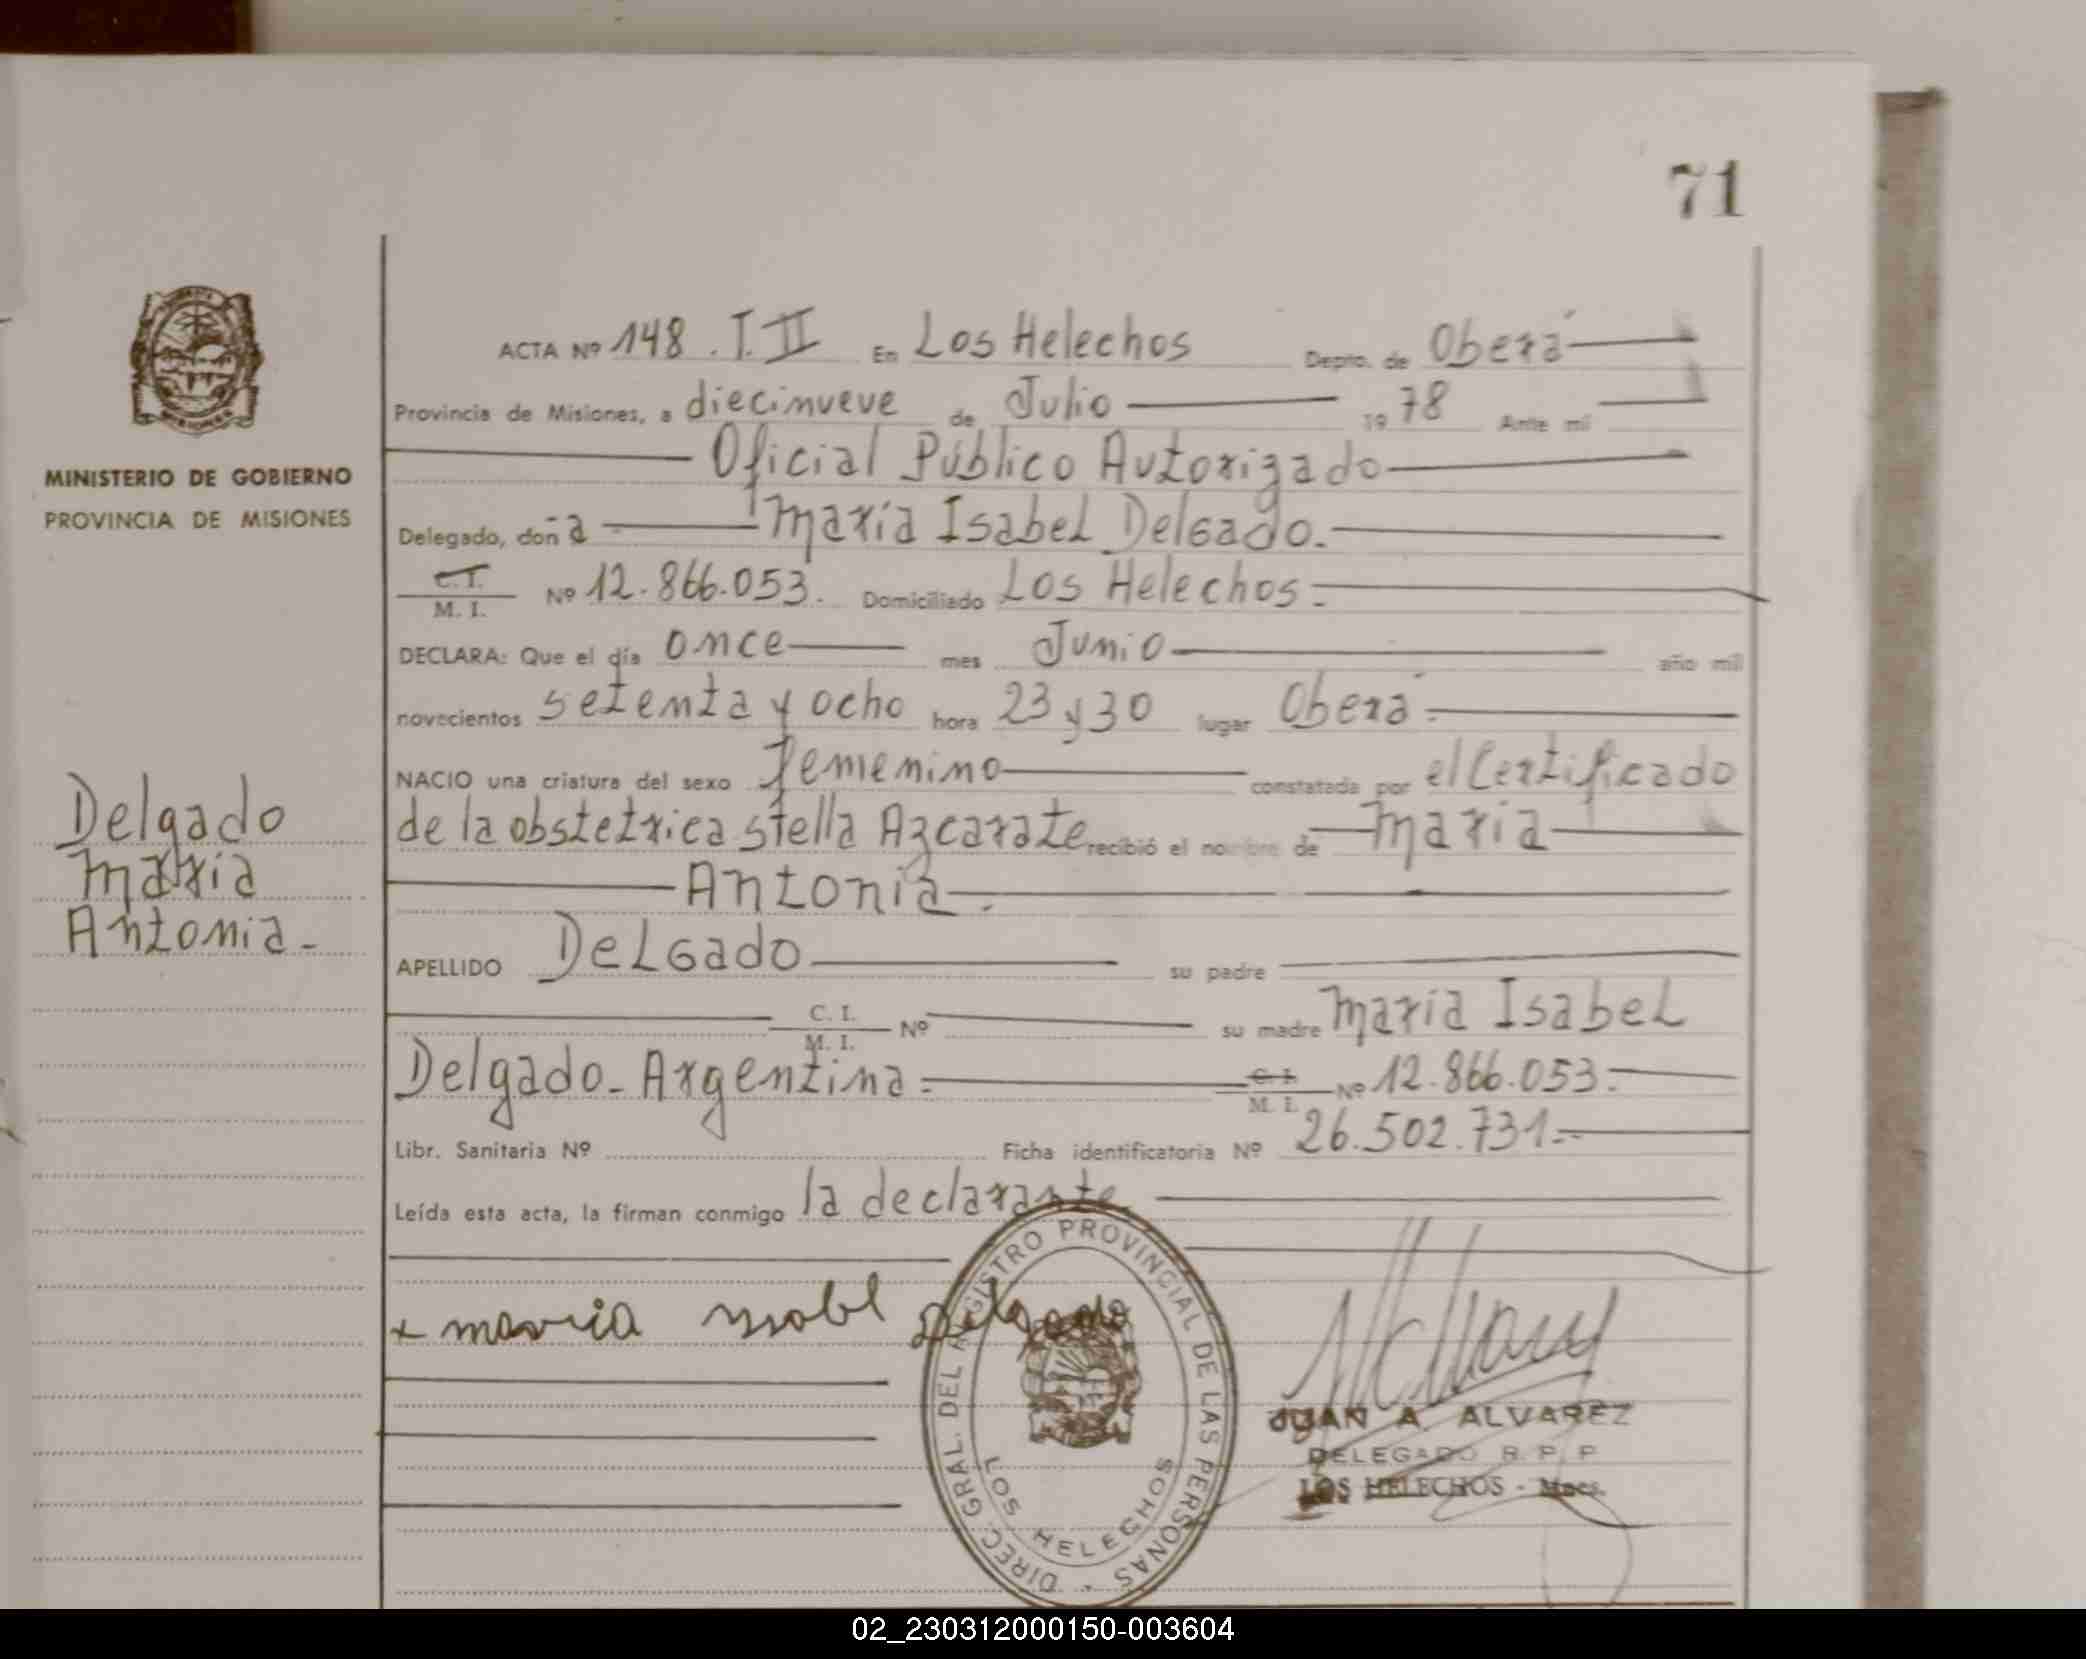 71
ACTA Nº 148. T. II En Los Helechos Depto. de Oberá
Provincia de Misiones, a diecinueve de Julio 19 78 Ante mí
Oficial Público Autorizado
Delegado, doñ a María Isabel Delgado.
C. I.
M. I.
Nº 12.866.053. Domiciliado Los Helechos.
DECLARA: Que el día once mes Junio año mil
novecientos setenta y ocho hora 23 y 30 lugar Oberá.
NACIO una criatura del sexo femenino constatada por el Certificado
de la obstetrica stella Azcarate recibió el nombre de María
Antonia.
APELLIDO Delgado su padre
C. I.
M. I.
Nº su madre María Isabel
Delgado - Argentina. C. I.
M. I.
Nº 12.866.053.
Libr. Sanitaria Nº Ficha identificatoria Nº 26.502.731.
Leída esta acta, la firman conmigo la declarante
x maria ysabl Delgado
DIREC. GRAL. DEL REGISTRO PROVINCIAL DE LAS PERSONAS
LOS HELECHOS
JUAN A. ALVAREZ
DELEGADO R. P. P.
LOS HELECHOS - Mnes.
MISIONES
MINISTERIO DE GOBIERNO
PROVINCIA DE MISIONES
Delgado
María
Antonia.
02_230312000150-003604